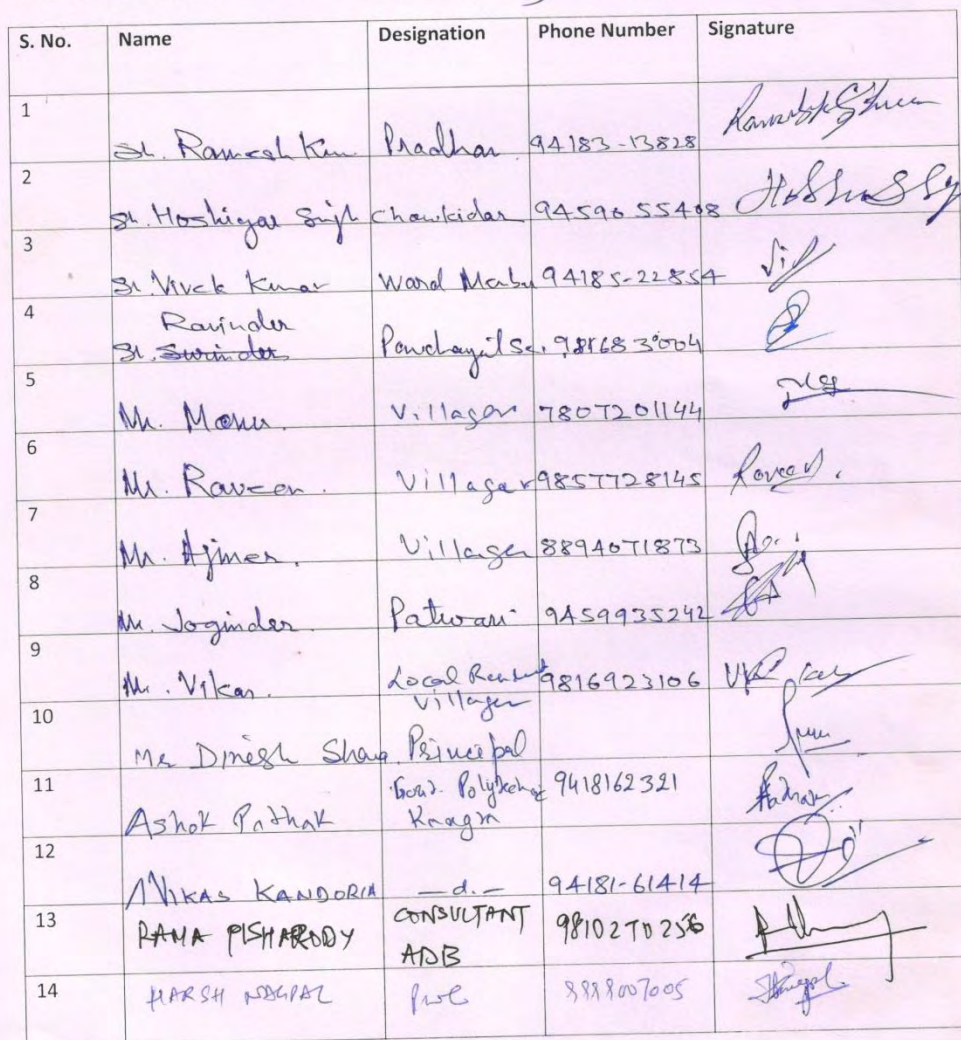 S. No. Name Designation Phone Number Signature
1 Sh. Ramesh Kum Pradhan 94183-13828
2 Sh. Hoshigar Singh Chowkidar 94590 55408
3 Sh. Vivek Kumar Ward Membe 94185-22854
4 Ravinder
Sh. Surinder Panchayat Se. 98168 30004
5 Mr. Monu. Villager 7807201144
6 Mr. Raveen. Villager 9857728145 Raveen.
7 Mr. Ajmer. Villager 8894071873
8 Mr. Joginder. Patwari 9459935242
9 Mr. Vikas. Local Villager 9816923106
10 Mr Dinesh Principal
11 Ashok Pathak Govt. Polytechnic 9418162321
12 VIKAS KANDORIA —d.— 94181-61414
13 RAMA PISHARODY CONSULTANT
ADB
14 HARSH NAGPAL